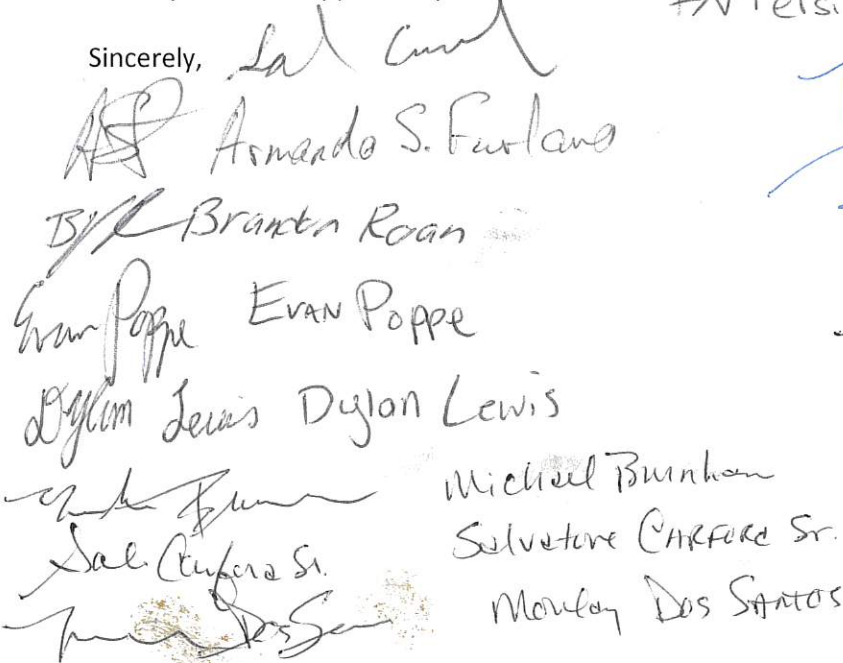 Sincerely, Sal
Armando S. Furlano
Brandon Roan
Evan Poppe Evan Poppe
Dylan Lewis Dylan Lewis
Michael Burnham
Sal Carfora Sr. Salvatore Carfora Sr.
Dos Santos